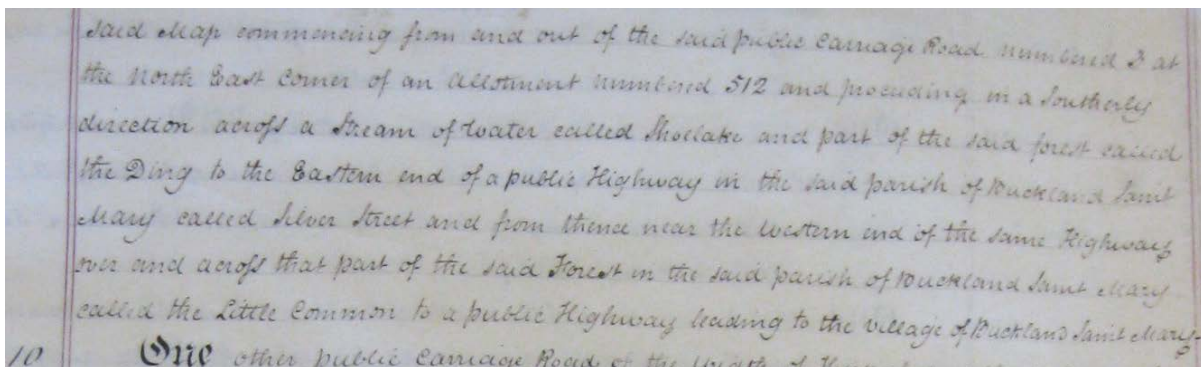 said Map commencing from and out of the said public Carriage Road numbered 3 at
the North East corner of an allotment numbered 512 and proceeding in a Southerly
direction across a Stream of Water called Shoelake and part of the said forest called
the Ding to the Eastern end of a public Highway in the said parish of Buckland Saint
Mary called Silver Street and from thence near the Western end of the same Highway
over and across that part of the said Forest in the said parish of Buckland Saint Mary
called the Little Common to a public Highway leading to the village of Buckland Saint Mary.
10 One other public Carriage Road of the Width of